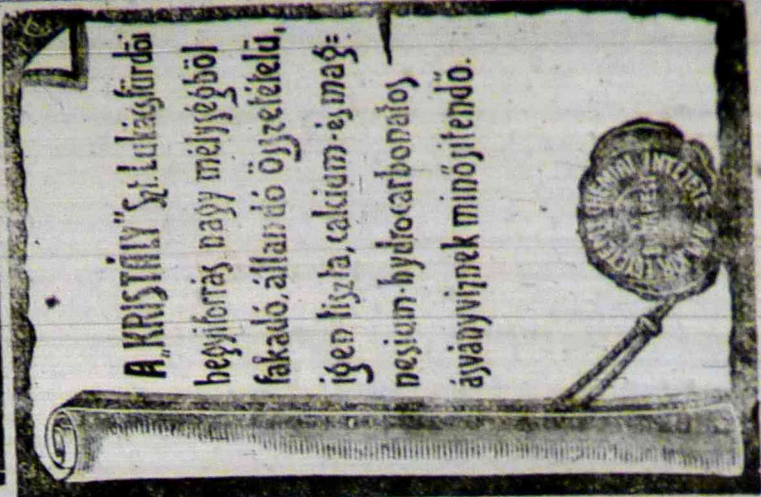 A „KRISTÁLY” Szt. Lukácsfürdői
hegyiforrás nagy mélységből
fakadó, állandó összetételü,
igen tiszta, calcium- és mag=
nesium-hydrocarbonatos
ásványviznek minősítendő.
CHEMIAI INTÉZET